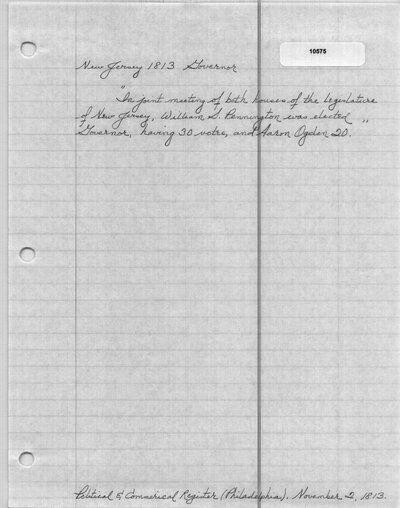 10575
New Jersey 1813 Governor
"In joint meeting of both houses of the legislature
of New Jersey, William S. Pennington was elected
Governor, having 30 votes, and Aaron Ogden 20."
Political & Commerical Register (Philadelphia). November 2, 1813.